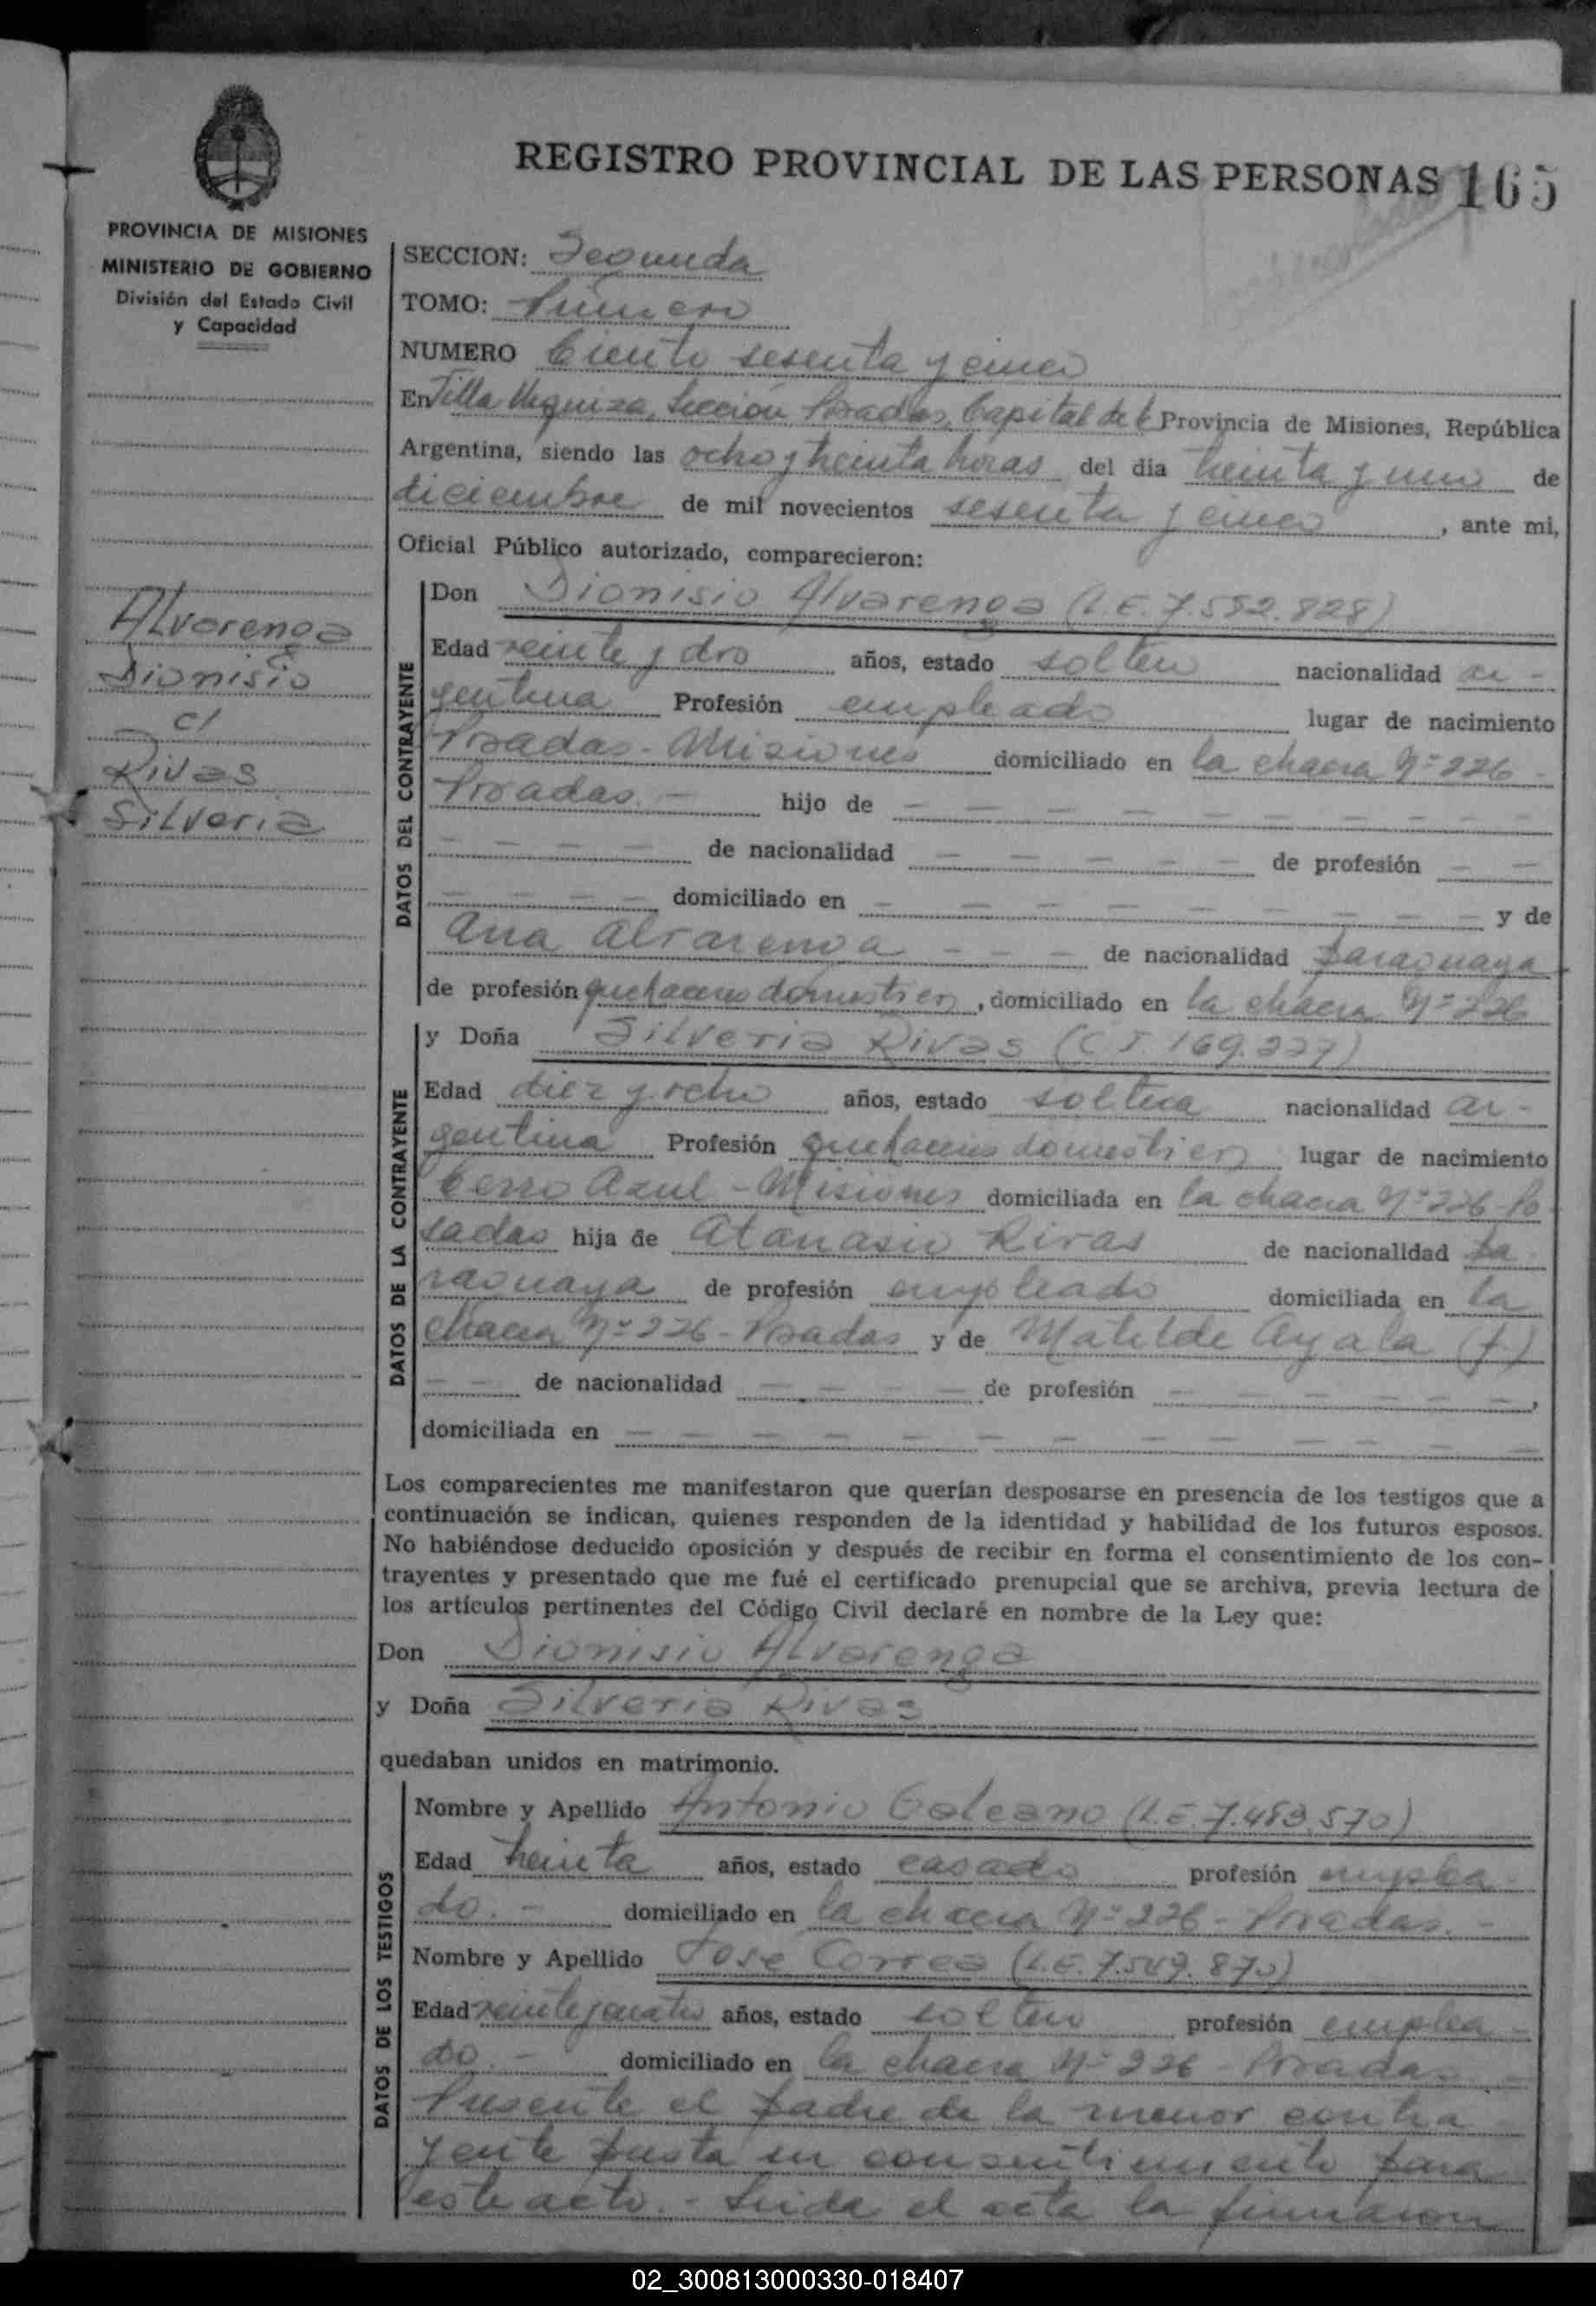 REGISTRO PROVINCIAL DE LAS PERSONAS 165
PROVINCIA DE MISIONES
MINISTERIO DE GOBIERNO
División del Estado Civil
y Capacidad
Alvarenga
Dionisio
c/
Rivas
Silveria
SECCION: Segunda
TOMO: Primero
NUMERO Ciento sesenta y cinco
En Villa Urquiza, Sección Posadas, Capital de l Provincia de Misiones, República
Argentina, siendo las ocho y treinta horas del dia treinta y uno de
diciembre de mil novecientos sesenta y cinco, ante mi,
Oficial Público autorizado, comparecieron:
DATOS DEL CONTRAYENTE
Don Dionisio Alvarenga (L.E. 7.552.828)
Edad veinte y dos años, estado soltero nacionalidad ar-
gentina Profesión empleado lugar de nacimiento
Posadas - Misiones domiciliado en la chacra Nº 226 -
Posadas. - hijo de - - - - - - -
- - - - de nacionalidad - - - - - de profesión - -
- - - - domiciliado en - - - - - - - - y de
Ana Alvarenga - - - de nacionalidad paraguaya
de profesión quehaceres domesticos, domiciliado en la chacra Nº 226
DATOS DE LA CONTRAYENTE
y Doña Silveria Rivas (C.I. 169.227)
Edad diez y ocho años, estado soltera nacionalidad ar-
gentina Profesión quehaceres domesticos lugar de nacimiento
Cerro Azul - Misiones domiciliada en la chacra Nº 226 - Po
sadas hija de Atanasio Rivas de nacionalidad pa
raguaya de profesión empleado domiciliada en la
chacra Nº 226 - Posadas y de Matilde Ayala (f.)
- - de nacionalidad - - - - de profesión - - - - - -,
domiciliada en - - - - - - - - - - -
Los comparecientes me manifestaron que querían desposarse en presencia de los testigos que a
continuación se indican, quienes responden de la identidad y habilidad de los futuros esposos.
No habiéndose deducido oposición y después de recibir en forma el consentimiento de los con-
trayentes y presentado que me fué el certificado prenupcial que se archiva, previa lectura de
los artículos pertinentes del Código Civil declaré en nombre de la Ley que:
Don Dionisio Alvarenga
y Doña Silveria Rivas
quedaban unidos en matrimonio.
DATOS DE LOS TESTIGOS
Nombre y Apellido Antonio Galeano (L.E. 7.483.570)
Edad treinta años, estado casado profesión emplea
do. - domiciliado en la chacra Nº 226 - Posadas. -
Nombre y Apellido Jose Correa (L.E. 7.549.870)
Edad veinte y cuatro años, estado soltero profesión emplea -
do. - domiciliado en la chacra Nº 226 Posadas. -
Presente el padre de la menor contra
yente presta su consentimiento para
este acto. - Leida el acta la firmaron
02_300813000330-018407